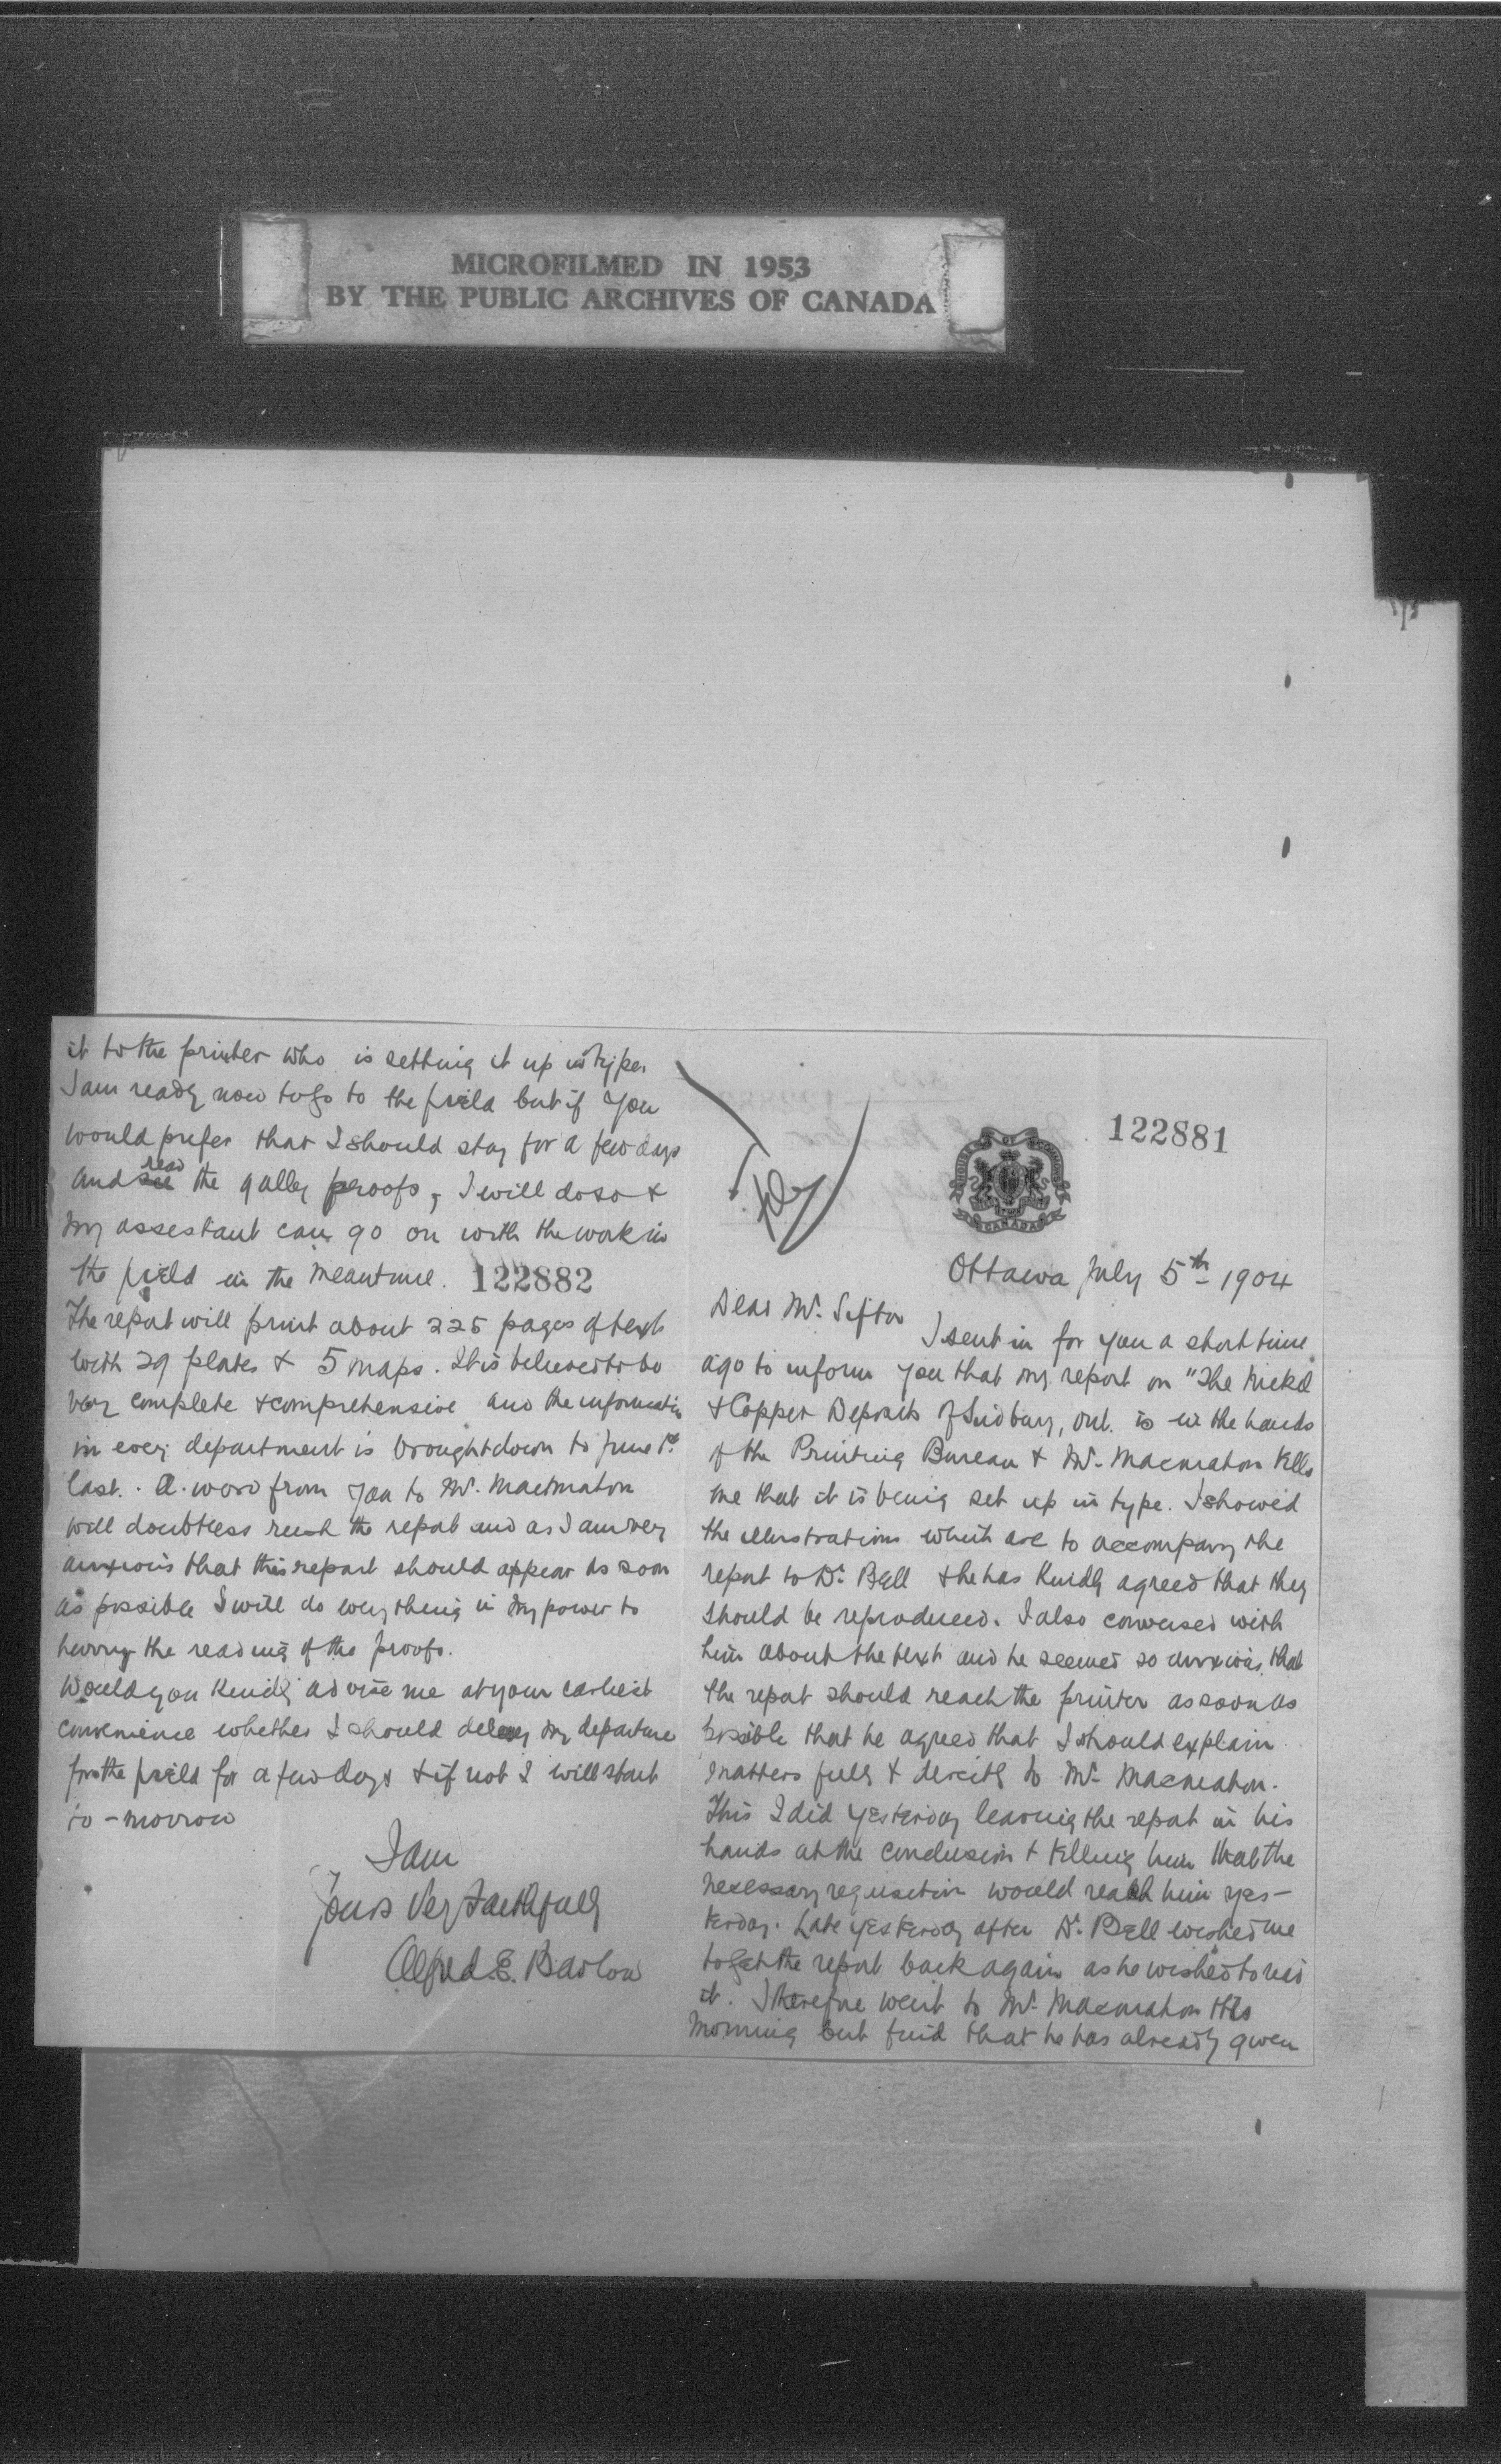 MICROFILMED IN 1953
BY THE PUBLIC ARCHIVES OF CANADA
122881
HOUSE OF COMMONS
CANADA
Ottawa July 5th 1904
Dear Mr. Sifton
I sent in for you a short time
ago to inform you that my report on "The Nickel
& Copper Deposits of Sudbury, Ont. is in the hands
of the Printing Bureau & Mr. Macmahon tells
me that it is being set up in type. I showed
the illustrations which are to accompany the
report to Dr. Bell & he has kindly agreed that they
should be reproduced. I also conversed with
him about the text and he seemed so anxious that
the report should reach the printer as soon as
possible that he agreed that I should explain
matters fully & directly to Mr. Macmahon.
This I did yesterday leaving the report in his
hands at the conclusion & telling him that the
necessary requisition would reach him yes-
terday. Late yesterday after Dr. Bell wished me
to get the report back again as he wished to read
it. I therefore went to Mr. Macmahon this
morning but find that he has already given
it to the printer who is setting it up in type.
I am ready now to go to the field but if you
would prefer that I should stay for a few days
and see read the galley proofs, I will do so &
my assistant can go on with the work in
the field in the meantime. 122882
The report will print about 225 pages of text
with 29 plates & 5 maps. It is believed to be
very complete & comprehensive and the information
in every department is brought down to June 1st
last. A word from you to Mr. Macmahon
will doubtless rush the report and as I am very
anxious that this report should appear as soon
as possible I will do everything in my power to
hurry the reading of the proofs.
Would you kindly advise me at your earliest
convenience whether I should delay my departure
for the field for a few days & if not I will start
to-morrow
I am
Yours Very Faithfully
Alfred. E. Barlow